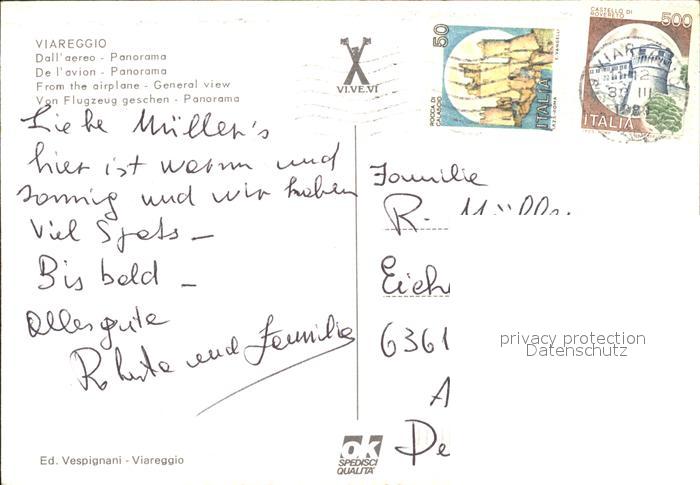 VIAREGGIO
Dall'aereo - Panorama
De l'avion - Panorama
From the airplane - General view
Von Flugzeug geschen - Panorama
VI.VE.VI
50
ROCCA DI CALASCIO
ITALIA
CASTELLO DI ROVERETO
500
ITALIA
Liebe Müller's
hier ist warm und
sonnig und wir haben
viel Spass –
Bis bald –
Alles gute
und Familie
Familie
R. Müller
Eich
6361
A
De
privacy protection
Datenschutz
Ed. Vespignani - Viareggio
ok
SPEDISCI
QUALITA'